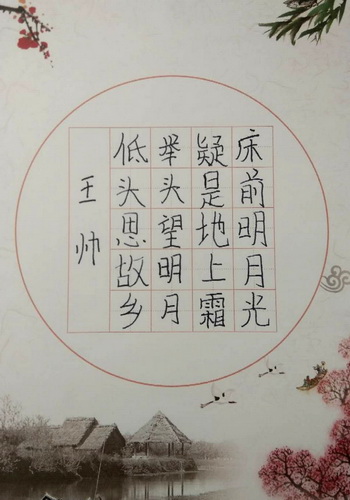 床前明月光
疑是地上霜
举头望明月
低头思故乡
王帅